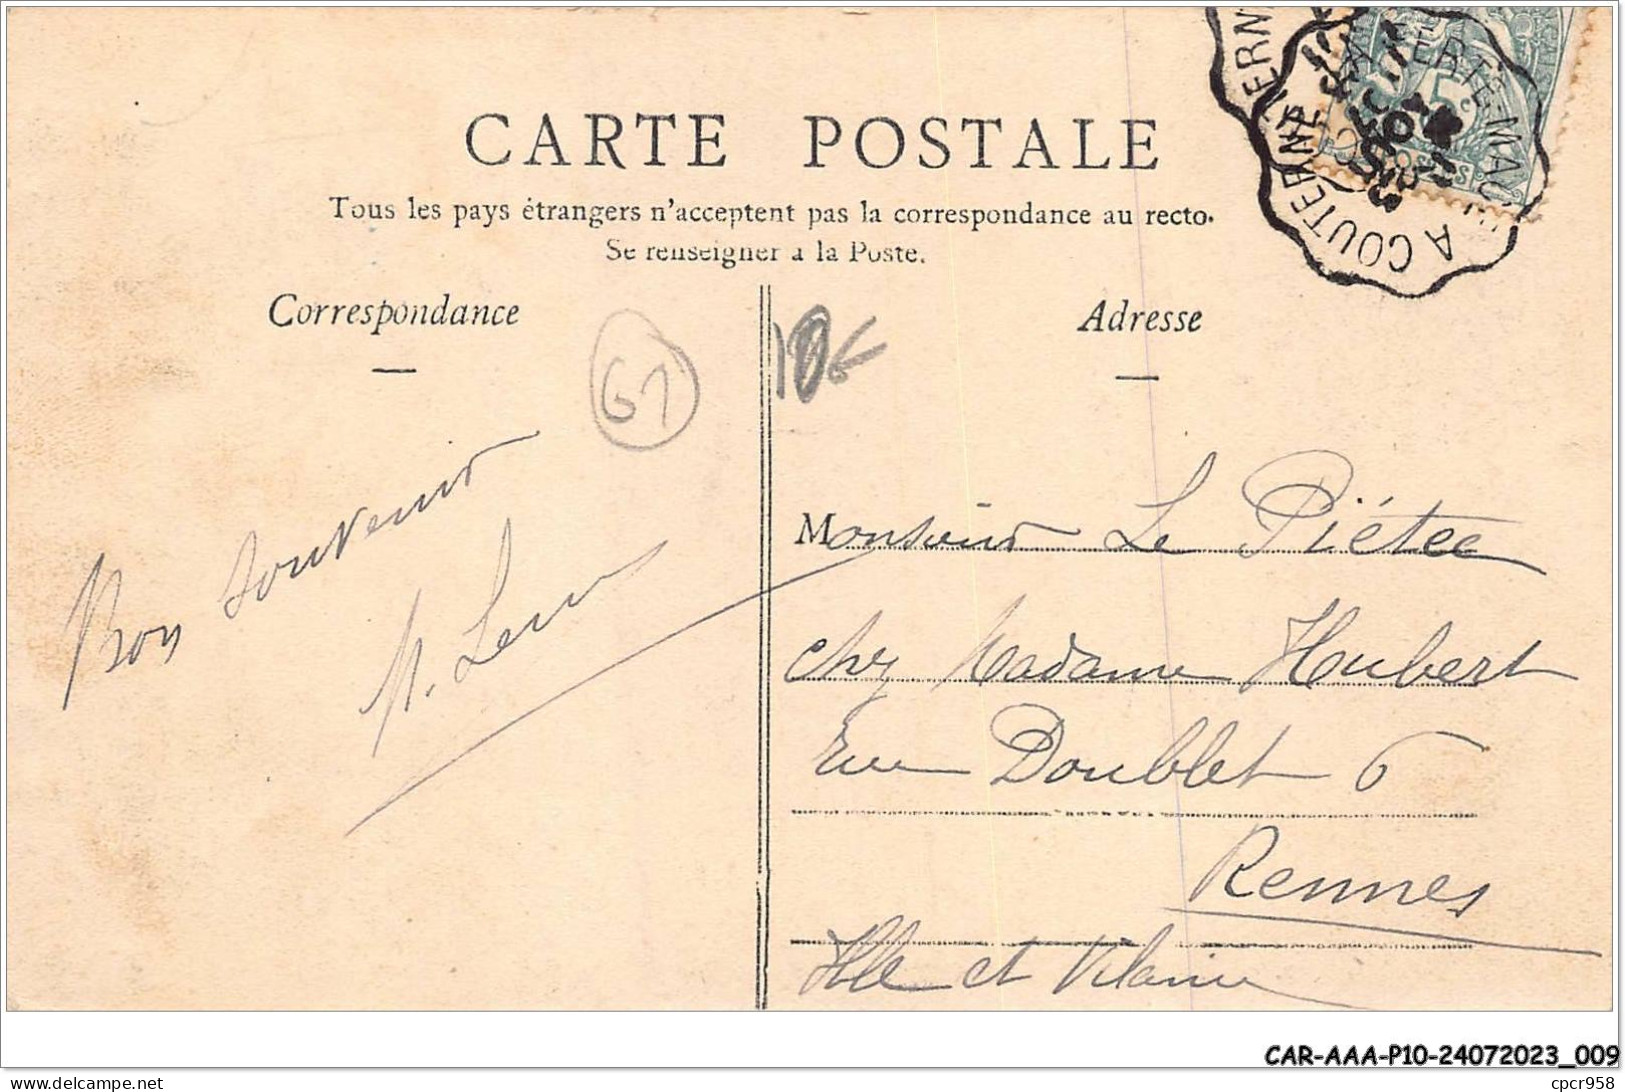 CARTE POSTALE
Tous les pays étrangers n'acceptent pas la correspondance au recto.
Se renseigner à la Poste.
Correspondance
Adresse
61
10€
LA FERTÉ-MACÉ
A COUTERNE
5c
POSTES
Bon Souvenir
M.
Monsieur Le Piétec
chez Madame Hubert
rue Doublet 6
Rennes
Ille et Vilaine
CAR-AAA-P10-24072023_009
delcampe.net
cpcr958